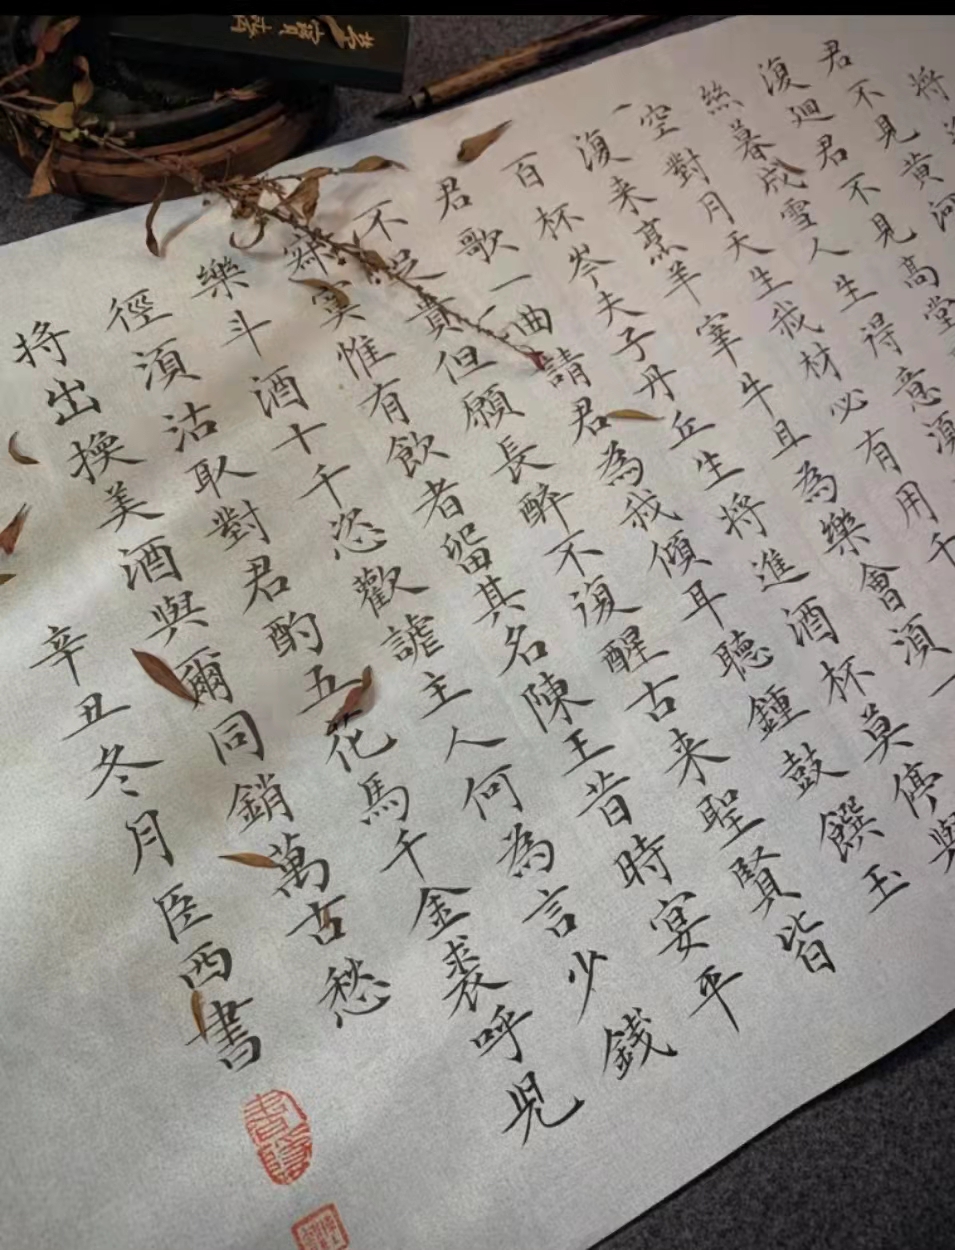 將進
君不見黄河
復迴君不見高堂
絲暮成雪人生得意須
空對月天生我材必有用千
復来烹羊宰牛且為樂會須一
百杯岑夫子丹丘生將進酒杯莫停與
君歌一曲請君為我傾耳聽鍾鼓饌玉
不足貴但願長醉不復醒古来聖賢皆
寂寞惟有飲者留其名陳王昔時宴平
樂斗酒十千恣歡謔主人何為言少錢
徑須沽取對君酌五花馬千金裘呼兒
將出換美酒與爾同銷萬古愁
辛丑冬月臣西書